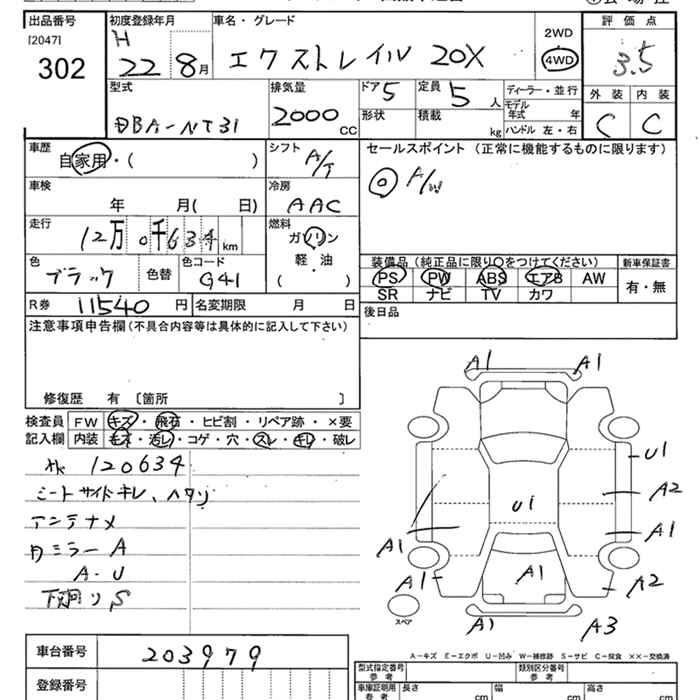 出品番号
[2047]
302
初度登録年月
H
22 8月
車名・グレード
エクストレイル 20X
2WD
4WD
評価点
3.5
外装 内装
C C
型式
DBA-NT31
排気量
2000 CC
ドア 5
形状
定員 5 人
積載 kg
ディーラー・並行
モデル年式 年
ハンドル 左・右
車歴
自家用・( )
シフト
A/T
セールスポイント (正常に機能するものに限ります)
◎ A/W
車検
年 月( 日)
冷房
AAC
走行
12万0千634 km
燃料
ガソリン
軽・油
( )
色
ブラック
色替
色コード
G41
装備品 (純正品に限り○をつけてください)
PS PW ABS エアB AW
SR ナビ TV カワ
新車保証書
有・無
R券 11540 円
名変期限 月 日
後日品
注意事項申告欄(不具合内容等は具体的に記入して下さい)
修復歴 有 〔箇所 〕
検査員
記入欄
FW キズ・飛石・ヒビ割・リペア跡・×要
内装 キズ・汚レ・コゲ・穴・スレ・キレ・破レ
120634
シートサイドキレ、ヘタリ
アンテナメ
ミラーA
A・U
下廻りS
A1 A1
U1
A2
U1
A1
A1
A1
A1
A2
A1
A3
スペア
A-キズ E-エクボ U-凹み W-補修跡 S-サビ C-腐食 ××-交換済
車台番号
203979
登録番号
型式指定番号
参考
類別区分番号
参考
車庫証明用
参考
長さ cm
幅 cm
高さ cm